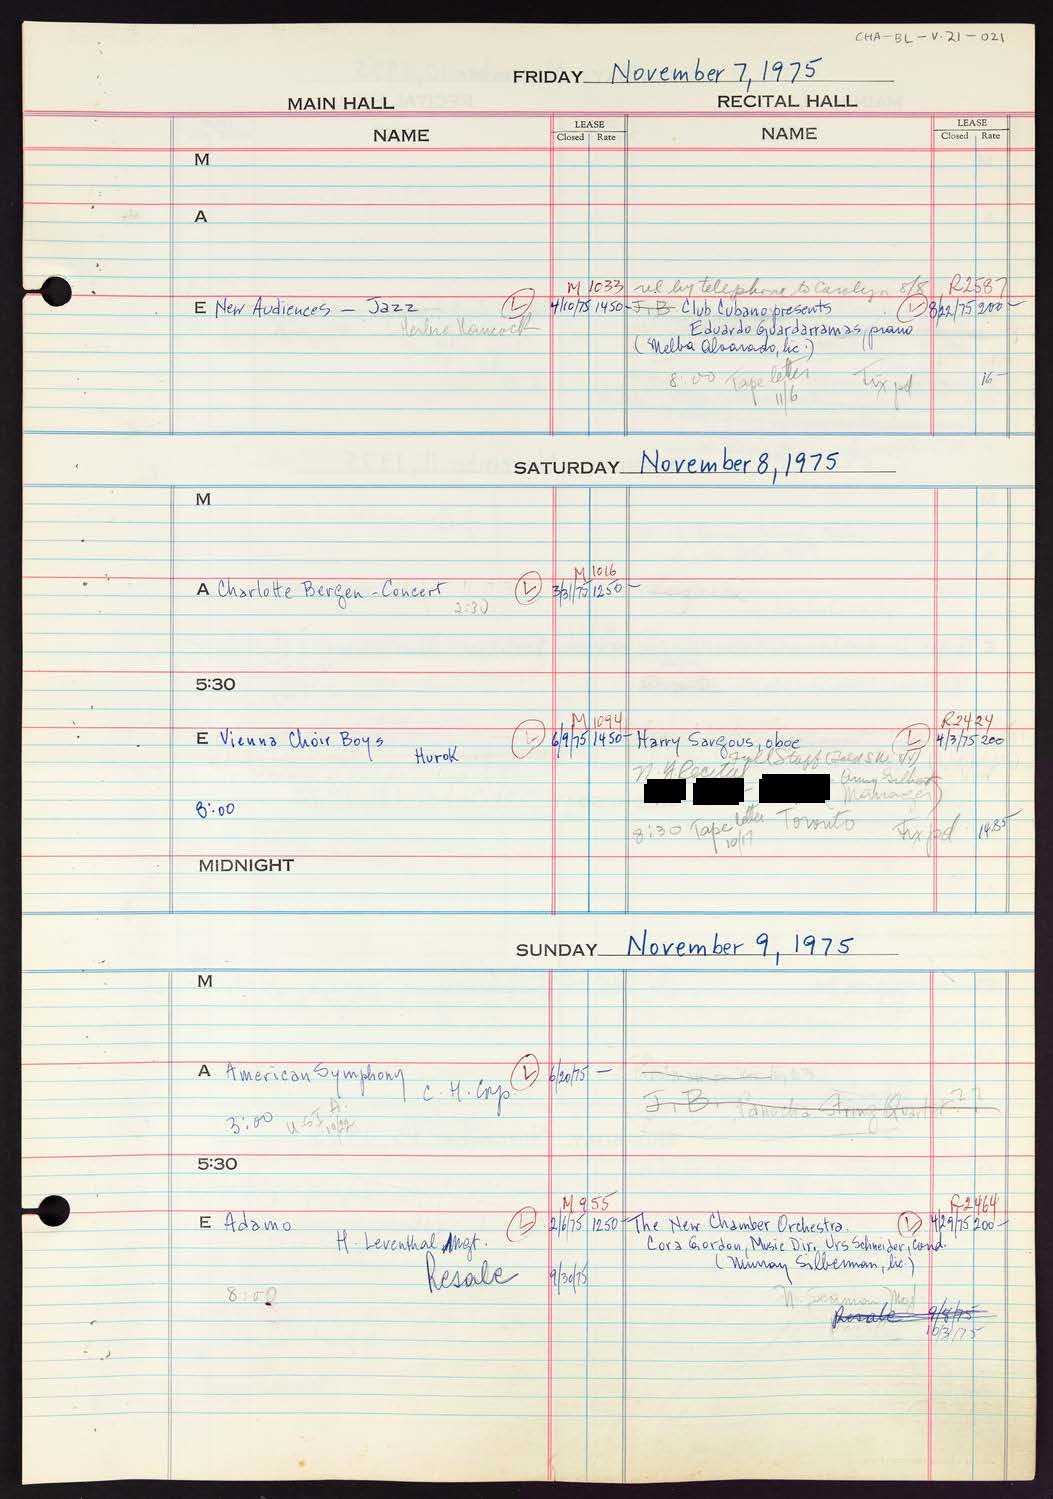 CHA-BL-V.21-021
FRIDAY November 7, 1975
MAIN HALL RECITAL HALL
NAME LEASE Closed Rate NAME LEASE Closed Rate
M
A
M 1033 rel by telephone to Carolyn 8/8 R2587
E New Audiences - Jazz L 4/10/75 1450- J.B. Club Cubano presents L 8/22/75 200-
Herbie Hancock Eduardo Guardarramas, piano
(Melba Alvarado, lic.)
8:00 Tape letter Fix pd 16-
11/6
SATURDAY November 8, 1975
M
M 1016
A Charlotte Bergen - Concert L 3/31/75 1250-
2:30
5:30
M 1094 R2424
E Vienna Choir Boys L 6/9/75 1450- Harry Sargous, oboe L 4/3/75 200
Hurok Full Staff
N.Y. Recital
Manager
8:00
8:30 Tape letter Toronto Fix pd 1485
10/17
MIDNIGHT
SUNDAY November 9, 1975
M
A American Symphony L 6/20/75 -
C.H. Corp.
3:00 J.B. Panocha String Quartet ??
5:30
M 955 R2464
E Adamo L 2/6/75 1250- The New Chamber Orchestra L 4/29/75 200-
H. Leventhal Mgt. Cora Gordon, Music Dir., Urs Schneider, Cond.
(Murray Silberman, lic.)
Resale 9/30/75
8:00
Resale 9/8/75
10/3/75